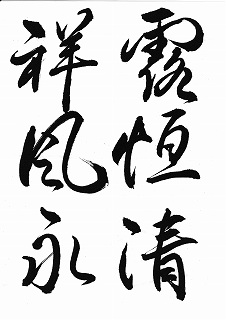 露恒清
祥风永